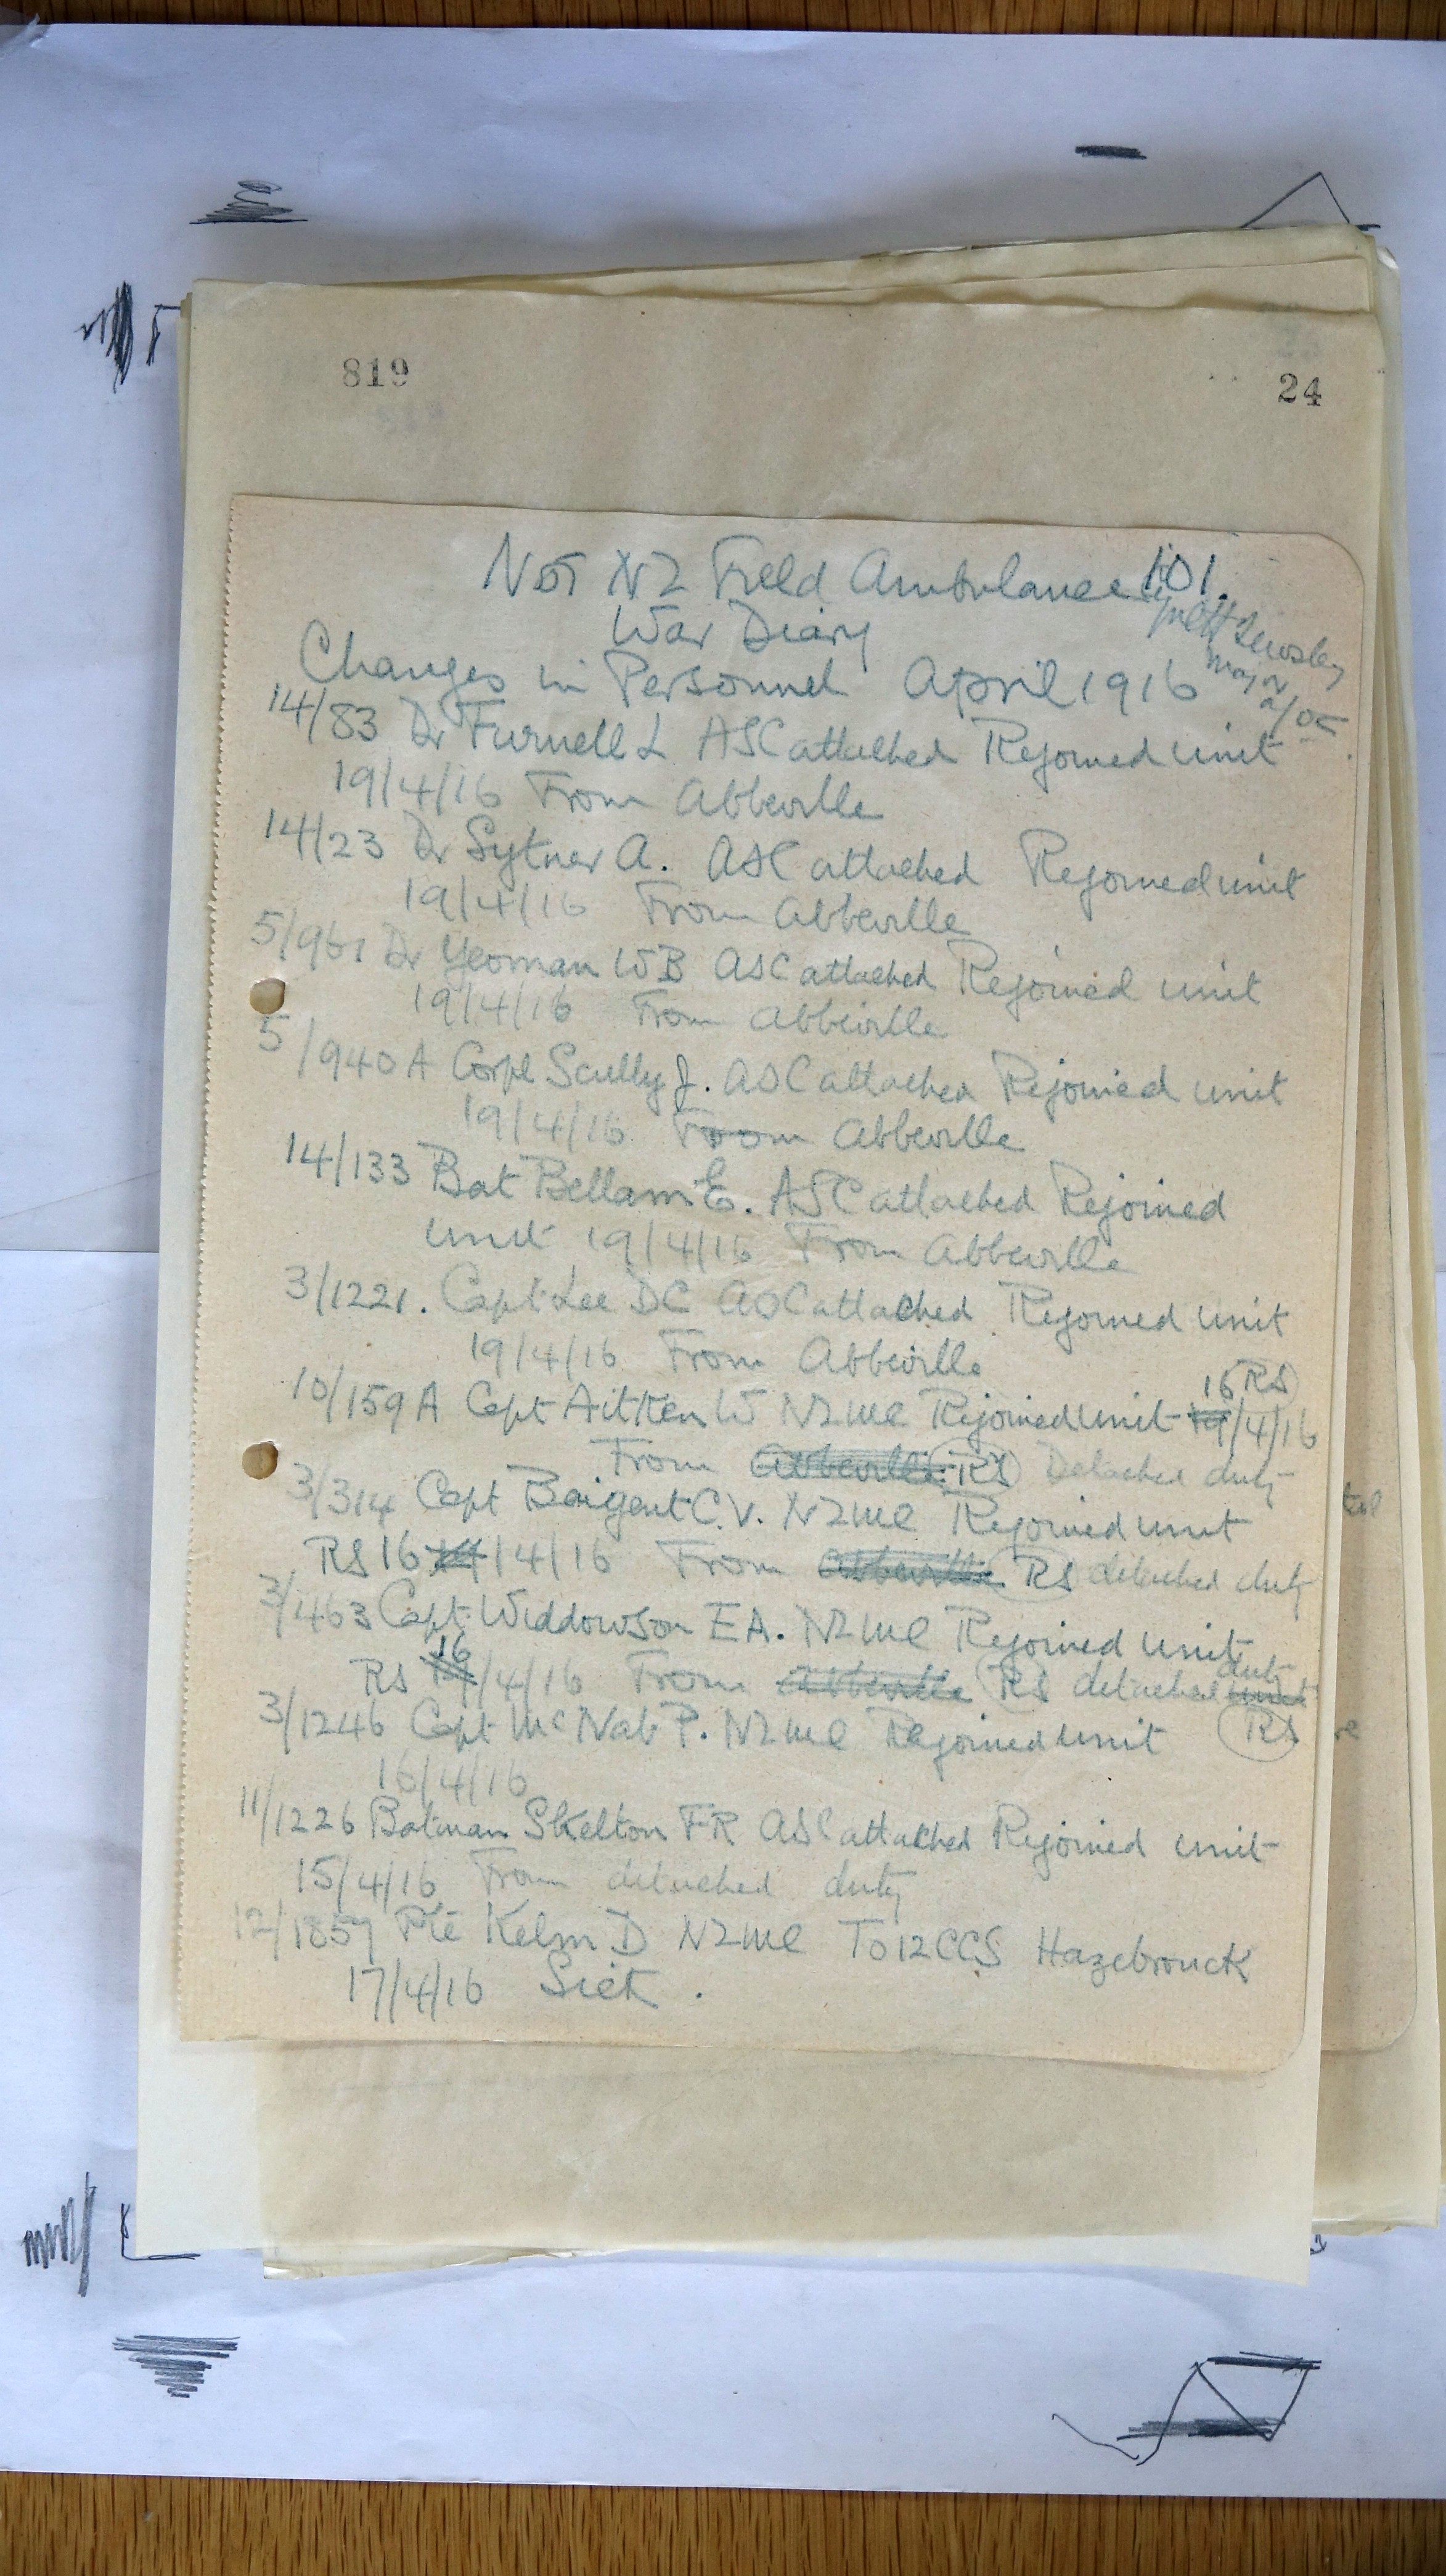 819
24
No 1 NZ Field Ambulance 101.
War Diary
Major
Changes in Personnel April 1916
14/83 Dr Furnell L ASC attached Rejoined unit
19/4/16 From Abbeville
14/23 Dr Sytner A. ASC attached Rejoined unit
19/4/16 From Abbeville
5/961 Dr Yeoman WB ASC attached Rejoined unit
19/4/16 From Abbeville
5/940A Corpl Scully J. ASC attached Rejoined unit
19/4/16 From Abbeville
14/133 Bat Bellam E. ASC attached Rejoined
unit 19/4/16 From Abbeville
3/1221. Capt Lee DC ASC attached Rejoined unit
19/4/16 From Abbeville
16 RS
10/159A Capt Aitken W NZMC Rejoined unit 19/4/16
From Abbeville RS Detached duty
3/314 Capt Baigent C.V. NZMC Rejoined unit
RS 16 19/4/16 From Abbeville RS detached duty
3/463 Capt Widdowson EA. NZMC Rejoined unit
RS 16 19/4/16 From Abbeville RS detached unit duty
3/1246 Capt McNab P. NZMC Rejoined unit RS
16/4/16
11/1226 Batman Skelton FR ASC attached Rejoined unit
15/4/16 From detached duty
12/1857 Pte Kelm D NZMC To 12 CCS Hazebrouck
17/4/16 Sick.